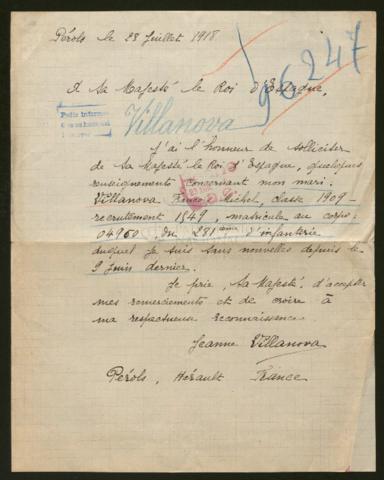 Pérols le 23 Juillet 1918
96247
A Sa Majesté le Roi d'Espagne,
Villanova
J'ai l'honneur de solliciter
de Sa Majesté le Roi d'Espagne, quelques
renseignements concernant mon mari:
Villanova Michel, classe 1909-
recrutement 1849, matricule au corps:
04960, du 281ème d'infanterie
duquel je suis sans nouvelles depuis le
9 Juin dernier.
Je prie, Sa Majesté, d'accepter
mes remerciements et de croire à
ma respectueuse reconnaissance
Jeanne Villanova
Pérols, Hérault France